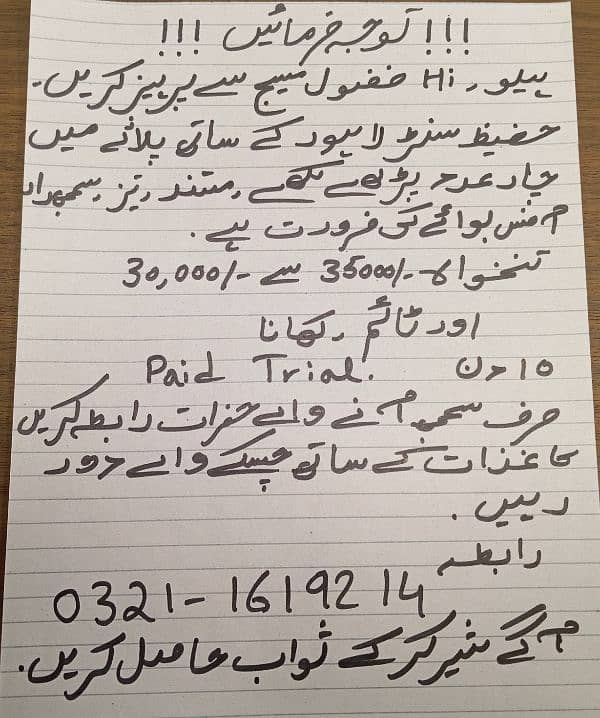 !!! توجہ فرمائیں !!!
ہیلو، Hi فضول میسج سے پرہیز کریں۔
حفیظ سنٹر لاہور کے ساتھ پلازے میں
چار عدد پڑھے لکھے، مستند، تیز، سمجھدار
آفس بوائے کی ضرورت ہے۔
تنخواہ 35000/- سے 30,000/-
اور ٹائم، کھانا
10 دن Paid Trial!
صرف سمجھ آنے والے حضرات رابطہ کریں
کاغذات کے ساتھ چسکے والے دور
رہیں۔
رابطہ
0321-1619214
آگے شیر کر کے ثواب حاصل کریں۔